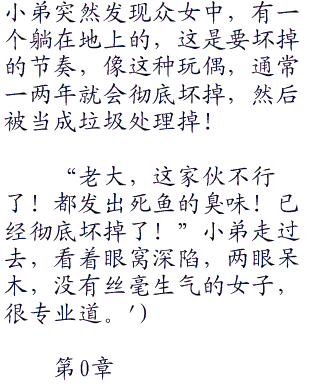 小弟突然发现众女中，有一
个躺在地上的，这是要坏掉
的节奏，像这种玩偶，通常
一两年就会彻底坏掉，然后
被当成垃圾处理掉！
“老大，这家伙不行
了！都发出死鱼的臭味！已
经彻底坏掉了！”小弟走过
去，看着眼窝深陷，两眼呆
木，没有丝毫生气的女子，
很专业道。')
第0章